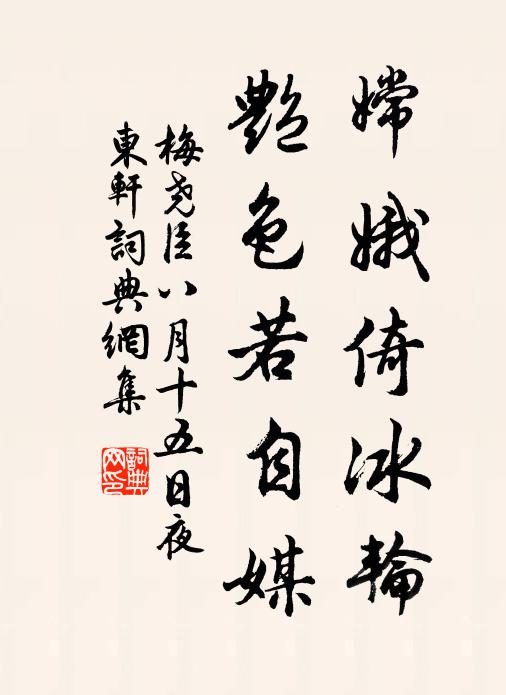 嫦娥倚冰輪
艷色若自媒
梅堯臣八月十五日夜
東軒詞典網集
詞典網印